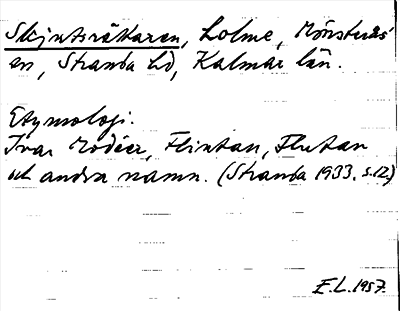 Skintsräkaren, Lolme, Mönsterås
sn, Stranda hd, Kalmar län.
Etymologi.
Ivar Modéer, Flintan, Flutan
och andra namn. (Stranda 1933, s.12)
E.L. 1957.